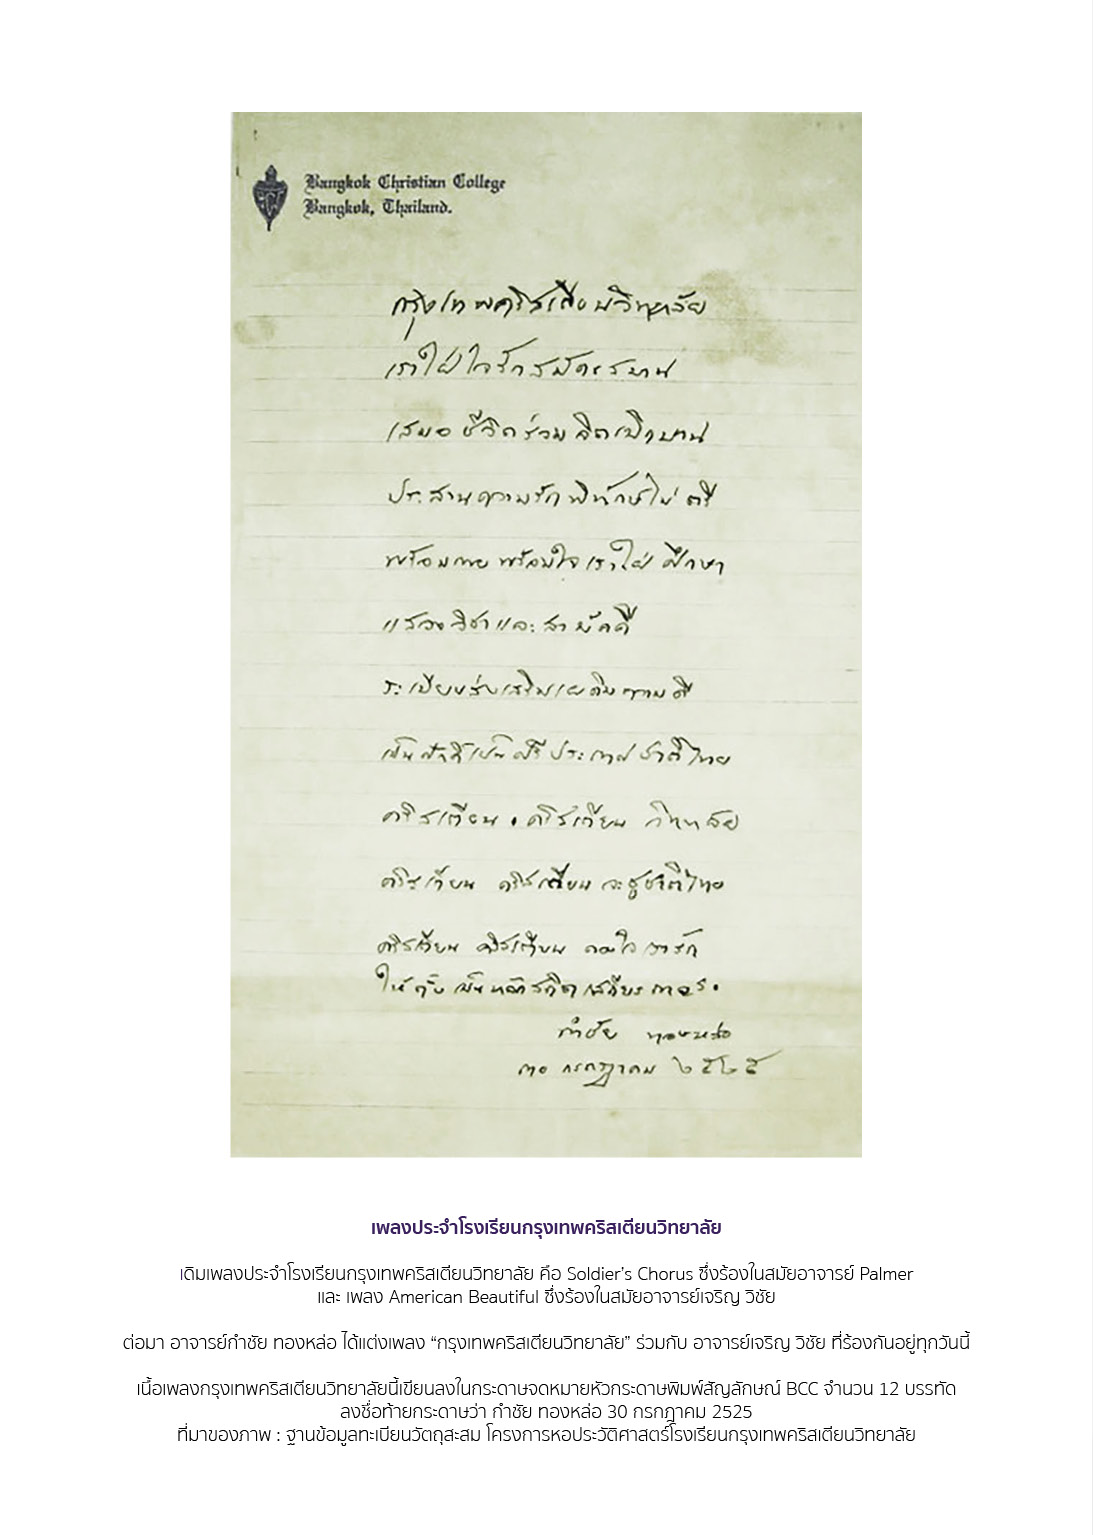 Bangkok Christian College
Bangkok, Thailand.
กรุงเทพคริสเตียนวิทยาลัย
เราใฝ่ใจรักสมัครสมาน
เสมอชีวิตร่วมจิตเบิกบาน
ประสานความรักพิทักษ์ไมตรี
พร้อมกายพร้อมใจเราใฝ่ศึกษา
แสวงวิชาและสามัคคี
ระเบียบส่งเสริมเฉลิมความดี
เป็นศักดิ์เป็นศรีประกาศชาติไทย
คริสเตียน. คริสเตียน วิทยาลัย
คริสเตียน คริสเตียน จะชูชาติไทย
คริสเตียน คริสเตียน ดวงใจเรารัก
กำชัย ทองหล่อ
๓๐ กรกฎาคม ๒๕๒๕
เพลงประจำโรงเรียนกรุงเทพคริสเตียนวิทยาลัย
เดิมเพลงประจำโรงเรียนกรุงเทพคริสเตียนวิทยาลัย คือ Soldier’s Chorus ซึ่งร้องในสมัยอาจารย์ Palmer
และ เพลง American Beautiful ซึ่งร้องในสมัยอาจารย์เจริญ วิชัย
ต่อมา อาจารย์กำชัย ทองหล่อ ได้แต่งเพลง “กรุงเทพคริสเตียนวิทยาลัย” ร่วมกับ อาจารย์เจริญ วิชัย ที่ร้องกันอยู่ทุกวันนี้
เนื้อเพลงกรุงเทพคริสเตียนวิทยาลัยนี้เขียนลงในกระดาษจดหมายหัวกระดาษพิมพ์สัญลักษณ์ BCC จำนวน 12 บรรทัด
ลงชื่อท้ายกระดาษว่า กำชัย ทองหล่อ 30 กรกฎาคม 2525
ที่มาของภาพ : ฐานข้อมูลทะเบียนวัตถุสะสม โครงการหอประวัติศาสตร์โรงเรียนกรุงเทพคริสเตียนวิทยาลัย